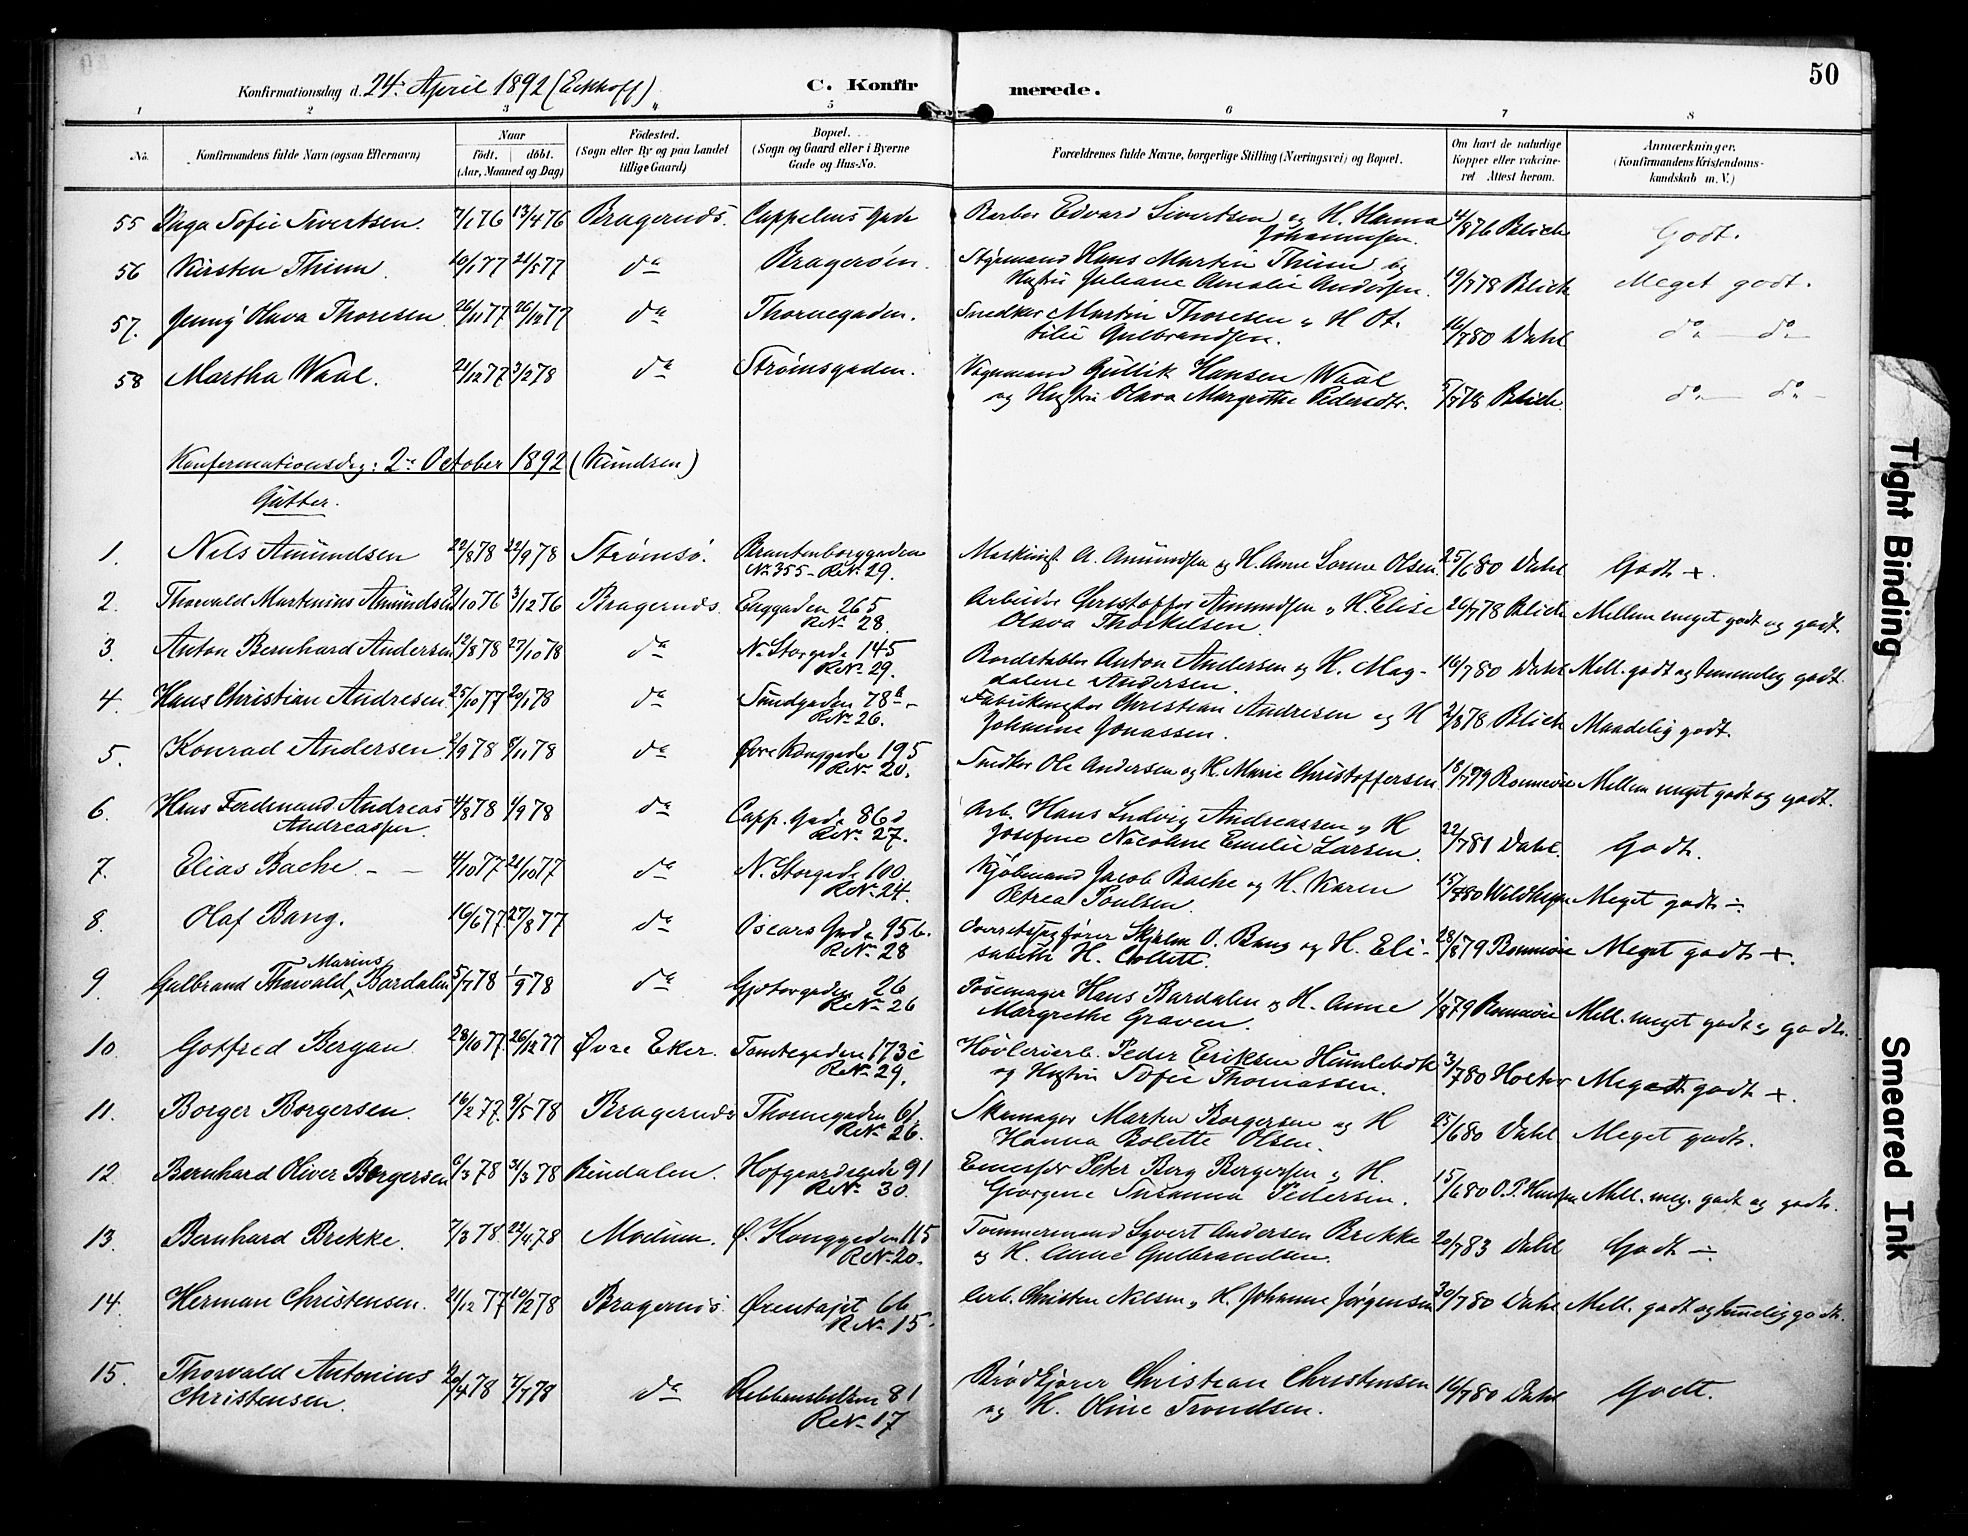 50
Konfirmationsdag d. 24. April 1892 (Eckhoff)
C. Konfirmerede.
1 2 3 4 5 6 7 8
No. Konfirmandens fulde Navn (ogsaa Efternavn) Naar født. døbt. (Aar, Maaned og Dag) Fødested. (Sogn eller By og paa Landet tillige Gaard) Bopæl. (Sogn og Gaard eller i Byerne Gade og Hus-No. Forældrenes fulde Navne, borgerlige Stilling (Næringsvei) og Bopæl. Om havt de naturlige Kopper eller vaccineret Attest herom. Anmærkninger. (Konfirmandens Kristendomskundskab m. V.)
55 Inga Sofie Sivertsen. 7/1 76 13/4 76 Bragernæs. Cappelens Gade Edvard Sivertsen og H. Hanna Johannesen. 14/8 76 Blich Godt.
56 Kirsten Thim 10/1 77 21/5 77 do Bragerøen. Styrmand Hans Martin Thim og Hustru Juliane Amalie Andersen. 19/7 78 Blich Meget godt.
57. Jenny Olava Thoresen 26/11 77 26/12 77 do Thornegaden. Snedker Martin Thoresen og H Otilie Gulbrandsen. 16/7 80 Dahl do do
58 Martha Waal. 21/12 77 3/2 78 do Strømsgaden. Vognmand Gullik Hansen Waal og Hustru Olava Margrethe Pedersdtr. 5/7 78 Blich. do do
Konfirmationsdag: 2. October 1892 (Knudsen)
Gutter.
1. Nils Amundsen 22/8 78 22/9 78 Strømsø. No 355 - R.No 29. Maskinist A. Amundsen og H. Anne Lorine Olsen. 25/6 80 Dahl Godt +.
2. Thorvald Martinius Amundsen /10 76 3/12 76 Bragernæs. Enggaden 265 R.No 28. Arbeider Christoffer Amundsen og H. Elise Olava Thorkelsen. 26/7 78 Blich Mellem meget godt og godt.
3. Anton Bernhard Andersen 12/8 78 27/10 78 do N. Storgade 145 R.No 29. Anton Andersen og H. Magdalene Andersen. 16/7 80 Dahl Mell. godt og temmelig godt.
4. Hans Christian Andresen. 25/10 77 20/1 78 do Sundgaden 78a - R.No 26. Christian Andresen og H Johanne Jonassen. 2/8 78 Blich Maadelig godt.
5. Konrad Andersen. 2/9 78 8/11 78 do Øvre Konggade 195 R.No 20. Snedker Ole Andersen og H. Marie Christoffersen 18/7 79 Mellem meget godt og godt.
6. Hans Ferdinand Andreas Andreassen. 4/8 78 1/9 78 do Capp. Gade 86d R.No 27. Arb. Hans Ludvig Andreassen og H Josefine Nicoline Emelie Larsen. 22/7 81 Dahl. Godt.
7. Elias Bache. - - 4/10 77 21/10 77 do N. Storgade 100. R.No 24. Kjøbmand Jacob Bache og H. Karen Petrea Poulsen. 15/7 80 Meget godt ÷.
8. Olaf Bang. 16/6 77. 27/8 77 do Oscars Gade 95b. R.No 28 Overretssagfører Skjelm O. Bang og H. Elisabeth H. Collett. 28/8 79 Meget godt +.
9. Gulbrand Thorvald Marius Bardalen 5/7 78 1/9 78 do 26 R.No 26 Hans Bardalen og H. Anne Margrethe Graven. 1/8 79 Mell. meget godt og godt.
10. Gotfred Bergan. 28/10 77 26/12 77 Øvre Eker. Tomtegaden 173c R.No 29. Høvleriarb. Peder Eriksen Humlebæk og Hustru Sofie Thomassen. 3/7 80 Holter Meget godt +.
11. Borger Borgersen. 16/2 77. 9/5 78 Bragernæs Thornegaden 61. R.No 26. Skomager Martin Borgersen og H Hanna Bolette Olsen. 25/6 80 Dahl Meget godt.
12. Bernhard Oliver Borgersen 6/3 78 31/3 78 Hofgaardsgade 91 R.No 30. Peter Berg Borgersen og H. Georgine Susanna Pedersen. 15/6 80 O.P. Hansen Mell. meg. godt og godt.
13. Bernhard Brekke. 7/3 78. 22/4 78 Modum. Ø. Konggaden 115 R.No 20. Tømmermand Syvert Andersen Brekke og H. Anne Gulbrandsen. 20/7 83 Dahl Godt ÷
14. Herman Christensen. 21/12 77 10/2 78 Bragernæs. 66 R.No 15. Arb. Christen Nilsen og H. Johanne Jørgensen 30/7 80 Dahl Mell. godt og temmelig godt.
15. Thorvald Antonius Christensen. 20/4 78 7/7 78 do 81 R.No 17 Brødkjører Christian Christensen og H. Oline Trondsen. 16/7 80 Dahl Godt.
Tight Binding
Smeared Ink